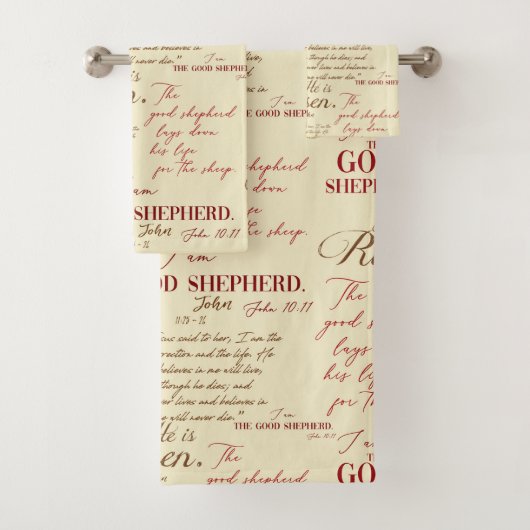 live, and believes in
me will never die."
I am
THE GOOD SHEPHERD.
John
The
good shepherd
lays down
his life
for the sheep.
I am
SHEPHERD.
John
John 10:11
11:25 - 26
believes in me will live,
though he dies; and
lives and believes in
me will never die."
I am
THE GOOD SHEPHERD.
John 10:11
He is
The
good shepherd
lays down
I am
THE GOOD SHEPHERD
shepherd
down
the sheep.
I am
GOOD SHEPHERD.
John
John 10:11
11:25 - 26
said to her, I am the
and the life. He
believes in me will live,
though he dies; and
lives and believes in
me will never die."
I am
THE GOOD SHEPHERD.
John 10:11
He is
The
good shepherd
THE
The
good
lays
his life
for the
I am
THE